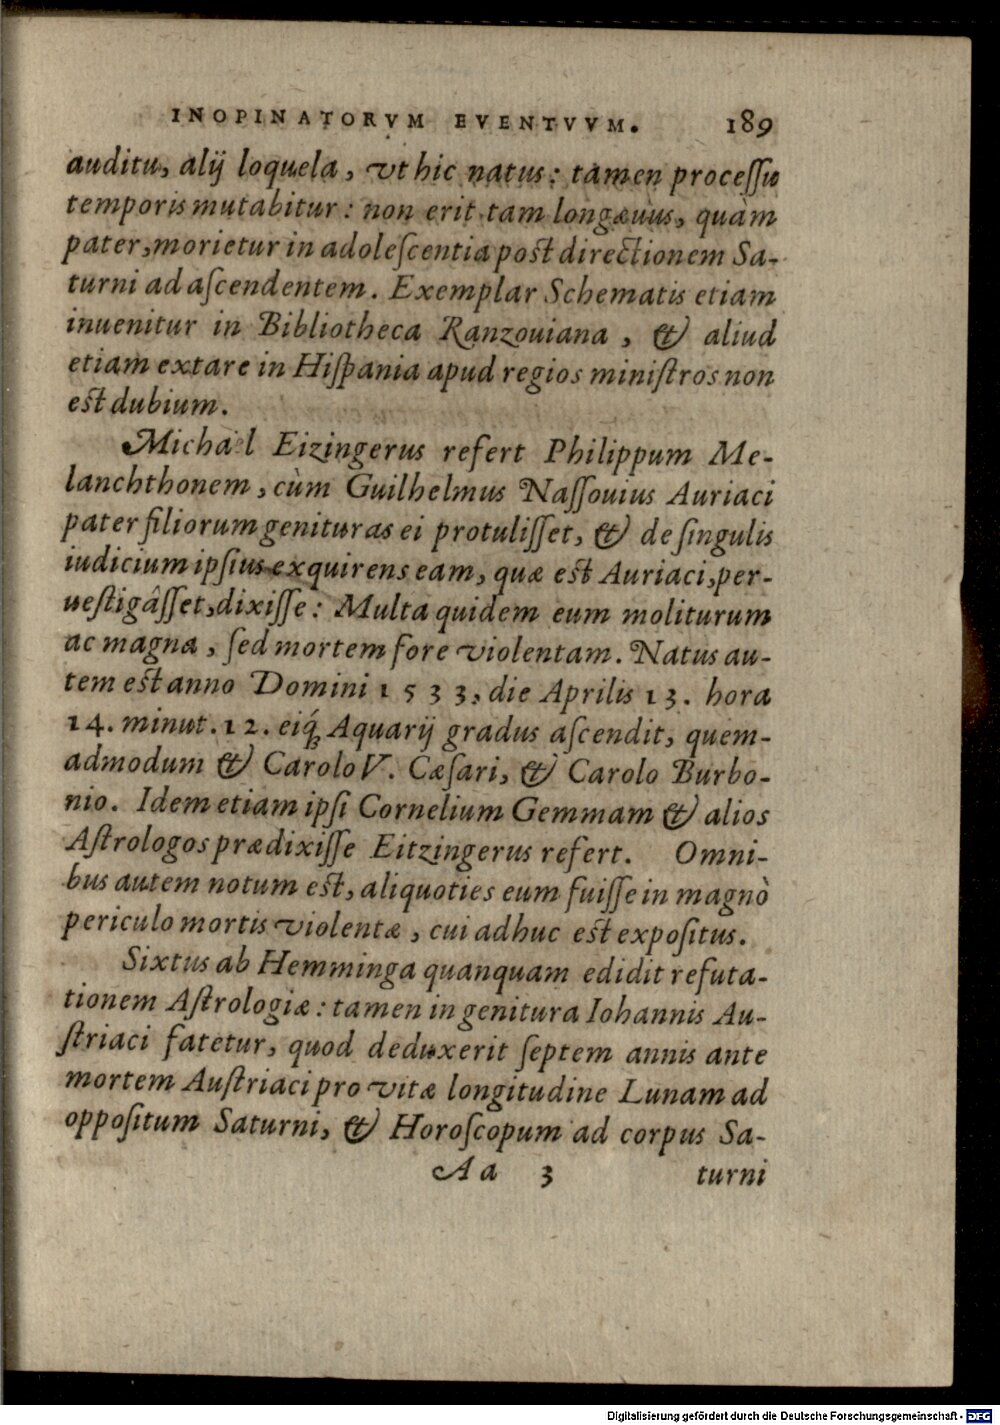 INOPINATORVM EVENTVVM. 189
auditu, alij loquela, vt hic natus: tamen processu
temporis mutabitur: non erit tam longæuus, quàm
pater, morietur in adolescentia post directionem Sa-
turni ad ascendentem. Exemplar Schematis etiam
inuenitur in Bibliotheca Ranzouiana, & aliud
etiam extare in Hispania apud regios ministros non
est dubium.
Michaël Eizingerus refert Philippum Me-
lanchthonem, cùm Guilhelmus Nassouius Auriaci
pater filiorum genituras ei protulisset, & de singulis
iudicium ipsius exquirens eam, quæ est Auriaci, per-
uestigâsset, dixisse: Multa quidem eum moliturum
ac magna, sed mortem fore violentam. Natus au-
tem est anno Domini 1533, die Aprilis 13. hora
14. minut. 12. eiq́; Aquarij gradus ascendit, quem-
admodum & Carolo V. Cæsari, & Carolo Burbo-
nio. Idem etiam ipsi Cornelium Gemmam & alios
Astrologos prædixisse Eitzingerus refert. Omni-
bus autem notum est, aliquoties eum fuisse in magnò
periculo mortis violentæ, cui adhuc est expositus.
Sixtus ab Hemminga quanquam edidit refuta-
tionem Astrologiæ: tamen in genitura Iohannis Au-
striaci fatetur, quod deduxerit septem annis ante
mortem Austriaci pro vitæ longitudine Lunam ad
oppositum Saturni, & Horoscopum ad corpus Sa-
Aa 3 turni
Digitalisierung gefördert durch die Deutsche Forschungsgemeinschaft - DFG